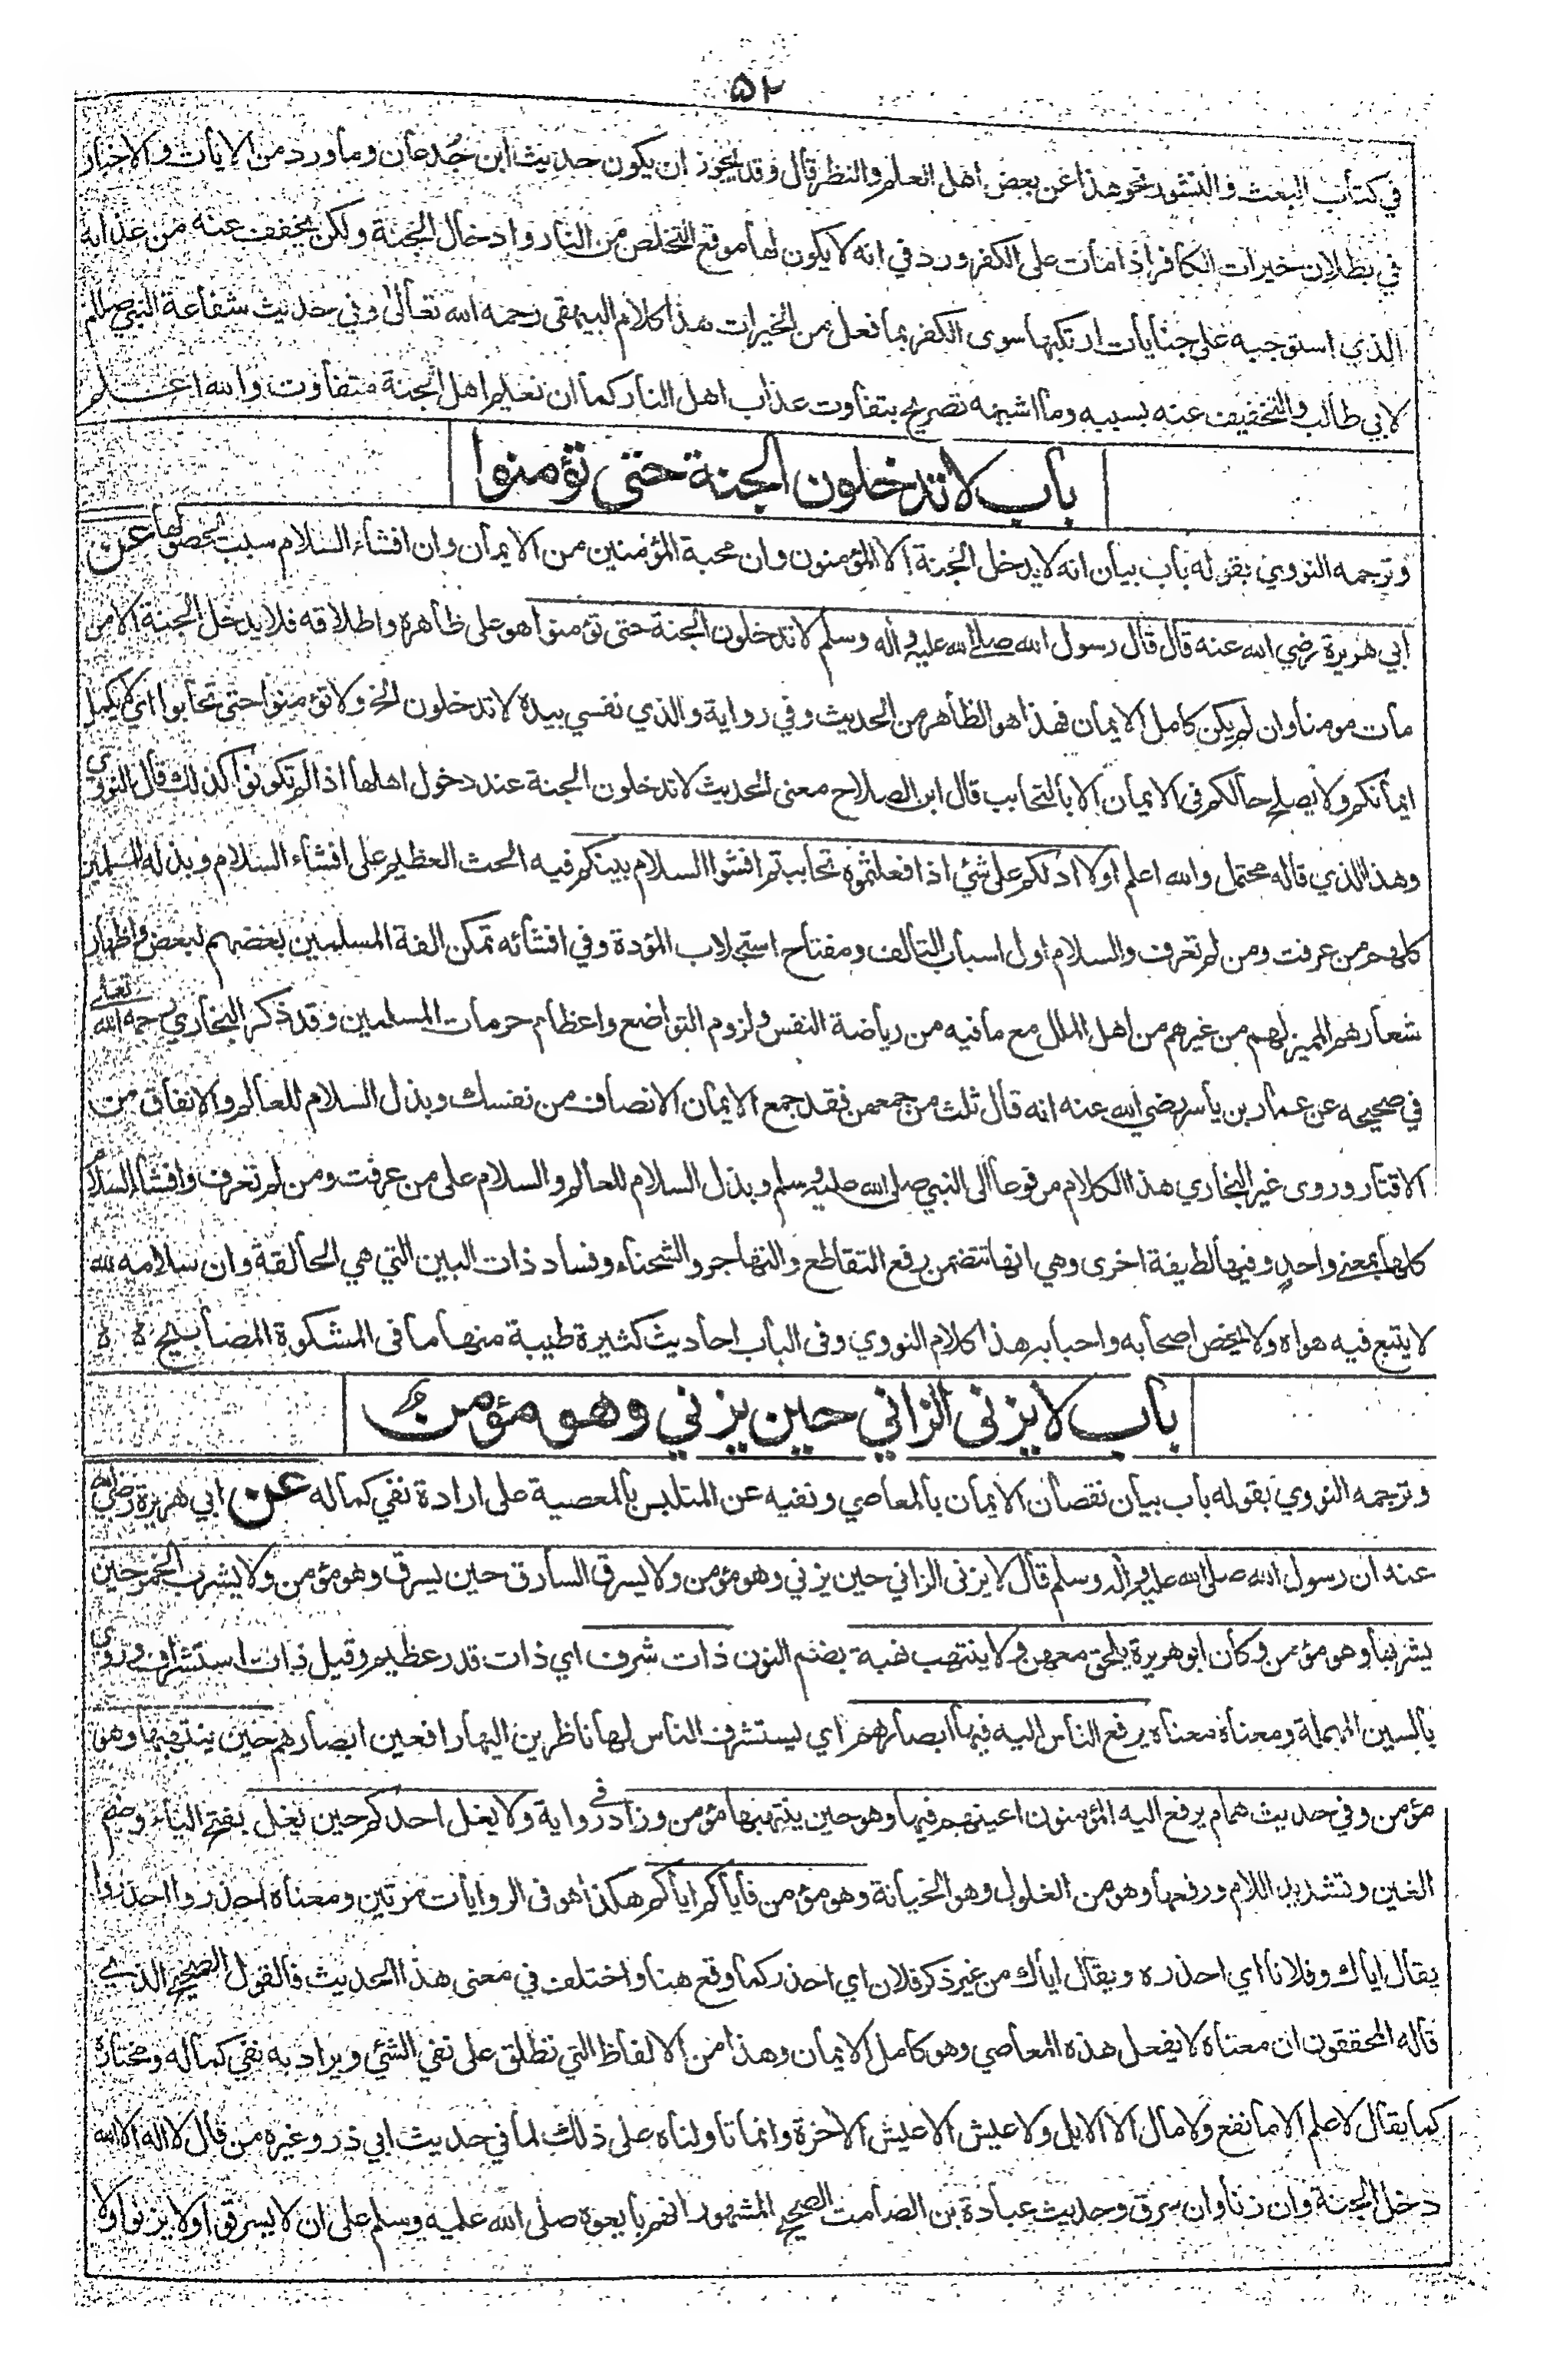 ۵۲
في كتاب البعث والنشور نحو هذا عن بعض اهل العلم والنظر قال وقد يجوز ان يكون حديث ابن جُدعان وما ورد من الايات والاخبار
في بطلان خيرات الكافر اذا مات على الكفر ورد في انه لا يكون لها موقع التخلص من النار وادخال الجنة ولكن يخفف عنه من عذابه
الذي استوجبه على جنايات ارتكبها سوى الكفر بما فعل من الخيرات هذا كلام البيهقى رحمه الله تعالى وفي حديث شفاعة النبي صللم
لابي طالب والتخفيف عنه بسببه وما اشبهه تصريح بتفاوت عذاب اهل النار كما ان نعيم اهل الجنة متفاوت والله اعلم
باب لا تدخلون الجنة حتى تؤمنوا
وترجمه النووي بقوله باب بيان انه لا يدخل الجنة الا المؤمنون وان محبة المؤمنين من الايمان وان افشاء السلام سبب لحصولها عن
ابي هريرة رضي الله عنه قال قال رسول الله صلى الله عليه وآله وسلم لا تدخلون الجنة حتى تؤمنوا هو على ظاهره واطلاقه فلا يدخل الجنة الا من
مات مومنا وان لم يكن كامل الايمان فهذا هو الظاهر من الحديث وفي رواية والذي نفسي بيده لا تدخلون الخ ولا تؤمنوا حتى تحابوا اي لا يكمل
ايمانكم ولا يصلح حالكم فى الايمان الا بالتحابب قال ابن الصلاح معنى الحديث لا تدخلون الجنة عند دخول اهلها اذا لم تكونوا كذلك قال النووي
وهذا الذي قاله محتمل والله اعلم اولا ادلكم على شئ اذا فعلتموه تحاببتم افشوا السلام بينكم فيه الحث العظيم على افشاء السلام وبذله للمسلمين
كلهم من عرفت ومن لم تعرف والسلام اول اسباب التالف ومفتاح استجلاب المؤدة وفي افشائه تمكن الفة المسلمين بعضهم لبعض واظهار
شعارهم المميز لهم من غيرهم من اهل الملل مع ما فيه من رياضة النفس ولزوم التواضع واعظام حرمات المسلمين وقد ذكر البخاري رحمه الله تعالى
في صحيحه عن عمار بن ياسر رضي الله عنه انه قال ثلث من جمعهن فقد جمع الايمان الانصاف من نفسك وبذل السلام للعالم والانفاق من
الاقتار وروى غير البخاري هذا الكلام مرفوعا الى النبي صلى الله عليه وسلم وبذل السلام للعالم والسلام على من عرفت ومن لم تعرف وافشاء السلام
كلها بمعنى واحد وفيها لطيفة اخرى وهي انها تتضمن رفع التقاطع والتهاجر والشحناء وفساد ذات البين التي هي الحالقة وان سلامه لله
لا يتبع فيه هواه ولا يخص اصحابه واحبابه هذا كلام النووي وفى الباب احاديث كثيرة طيبة منها ما فى المشكوة المصابيح
باب لا يزنى الزاني حين يزني وهو مؤمن
وترجمه النووي بقوله باب بيان نقصان الايمان بالمعاصي ونفيه عن المتلبس بالمعصية على ارادة نفي كماله عن ابي هريرة رضي الله
عنه ان رسول الله صلى الله عليه وآله وسلم قال لا يزنى الزاني حين يزني وهو مؤمن ولا يسرق السارق حين يسرق وهو مؤمن ولا يشرب الخمر حين
يشربها وهو مؤمن وكان ابو هريرة يلحق معهن ولا ينتهب نهبة بضم النون ذات شرف اي ذات قدر عظيم وقيل ذات استشراف وروي
بالسين المهملة ومعناه معناه يرفع الناس اليه فيها ابصارهم اي يستشرف الناس لها ناظرين اليها رافعين ابصارهم حين ينتهبها وهو
مؤمن وفي حديث همام يرفع اليه المؤمنون اعينهم فيها وهو حين ينتهبها مؤمن وزاد في رواية ولا يغل احدكم حين يغل بفتح الياء وضم
الغين وتشديد اللام ورفعها وهو من الغلول وهو الخيانة وهو مؤمن فاياكم اياكم هكذا هو فى الروايات مرتين ومعناه احذروا احذروا
يقال اياك وفلانا اي احذره ويقال اياك من غير ذكر فلان اي احذر كما وقع هنا واختلف في معنى هذا الحديث فالقول الصحيح الذي
قاله المحققون ان معناه لا يفعل هذه المعاصي وهو كامل الايمان وهذا من الالفاظ التي تطلق على نفي الشئ ويراد به نفي كماله ومختاره
كما يقال لا علم الا ما نفع ولا مال الا الابل ولا عيش الا عيش الآخرة وانما تاولناه على ذلك لما في حديث ابي ذر وغيره من قال لا اله الا الله
دخل الجنة وان زنا وان سرق وحديث عبادة بن الصامت الصحيح المشهور انهم بايعوه صلى الله عليه وسلم على ان لا يسرقوا ولا يزنوا ولا